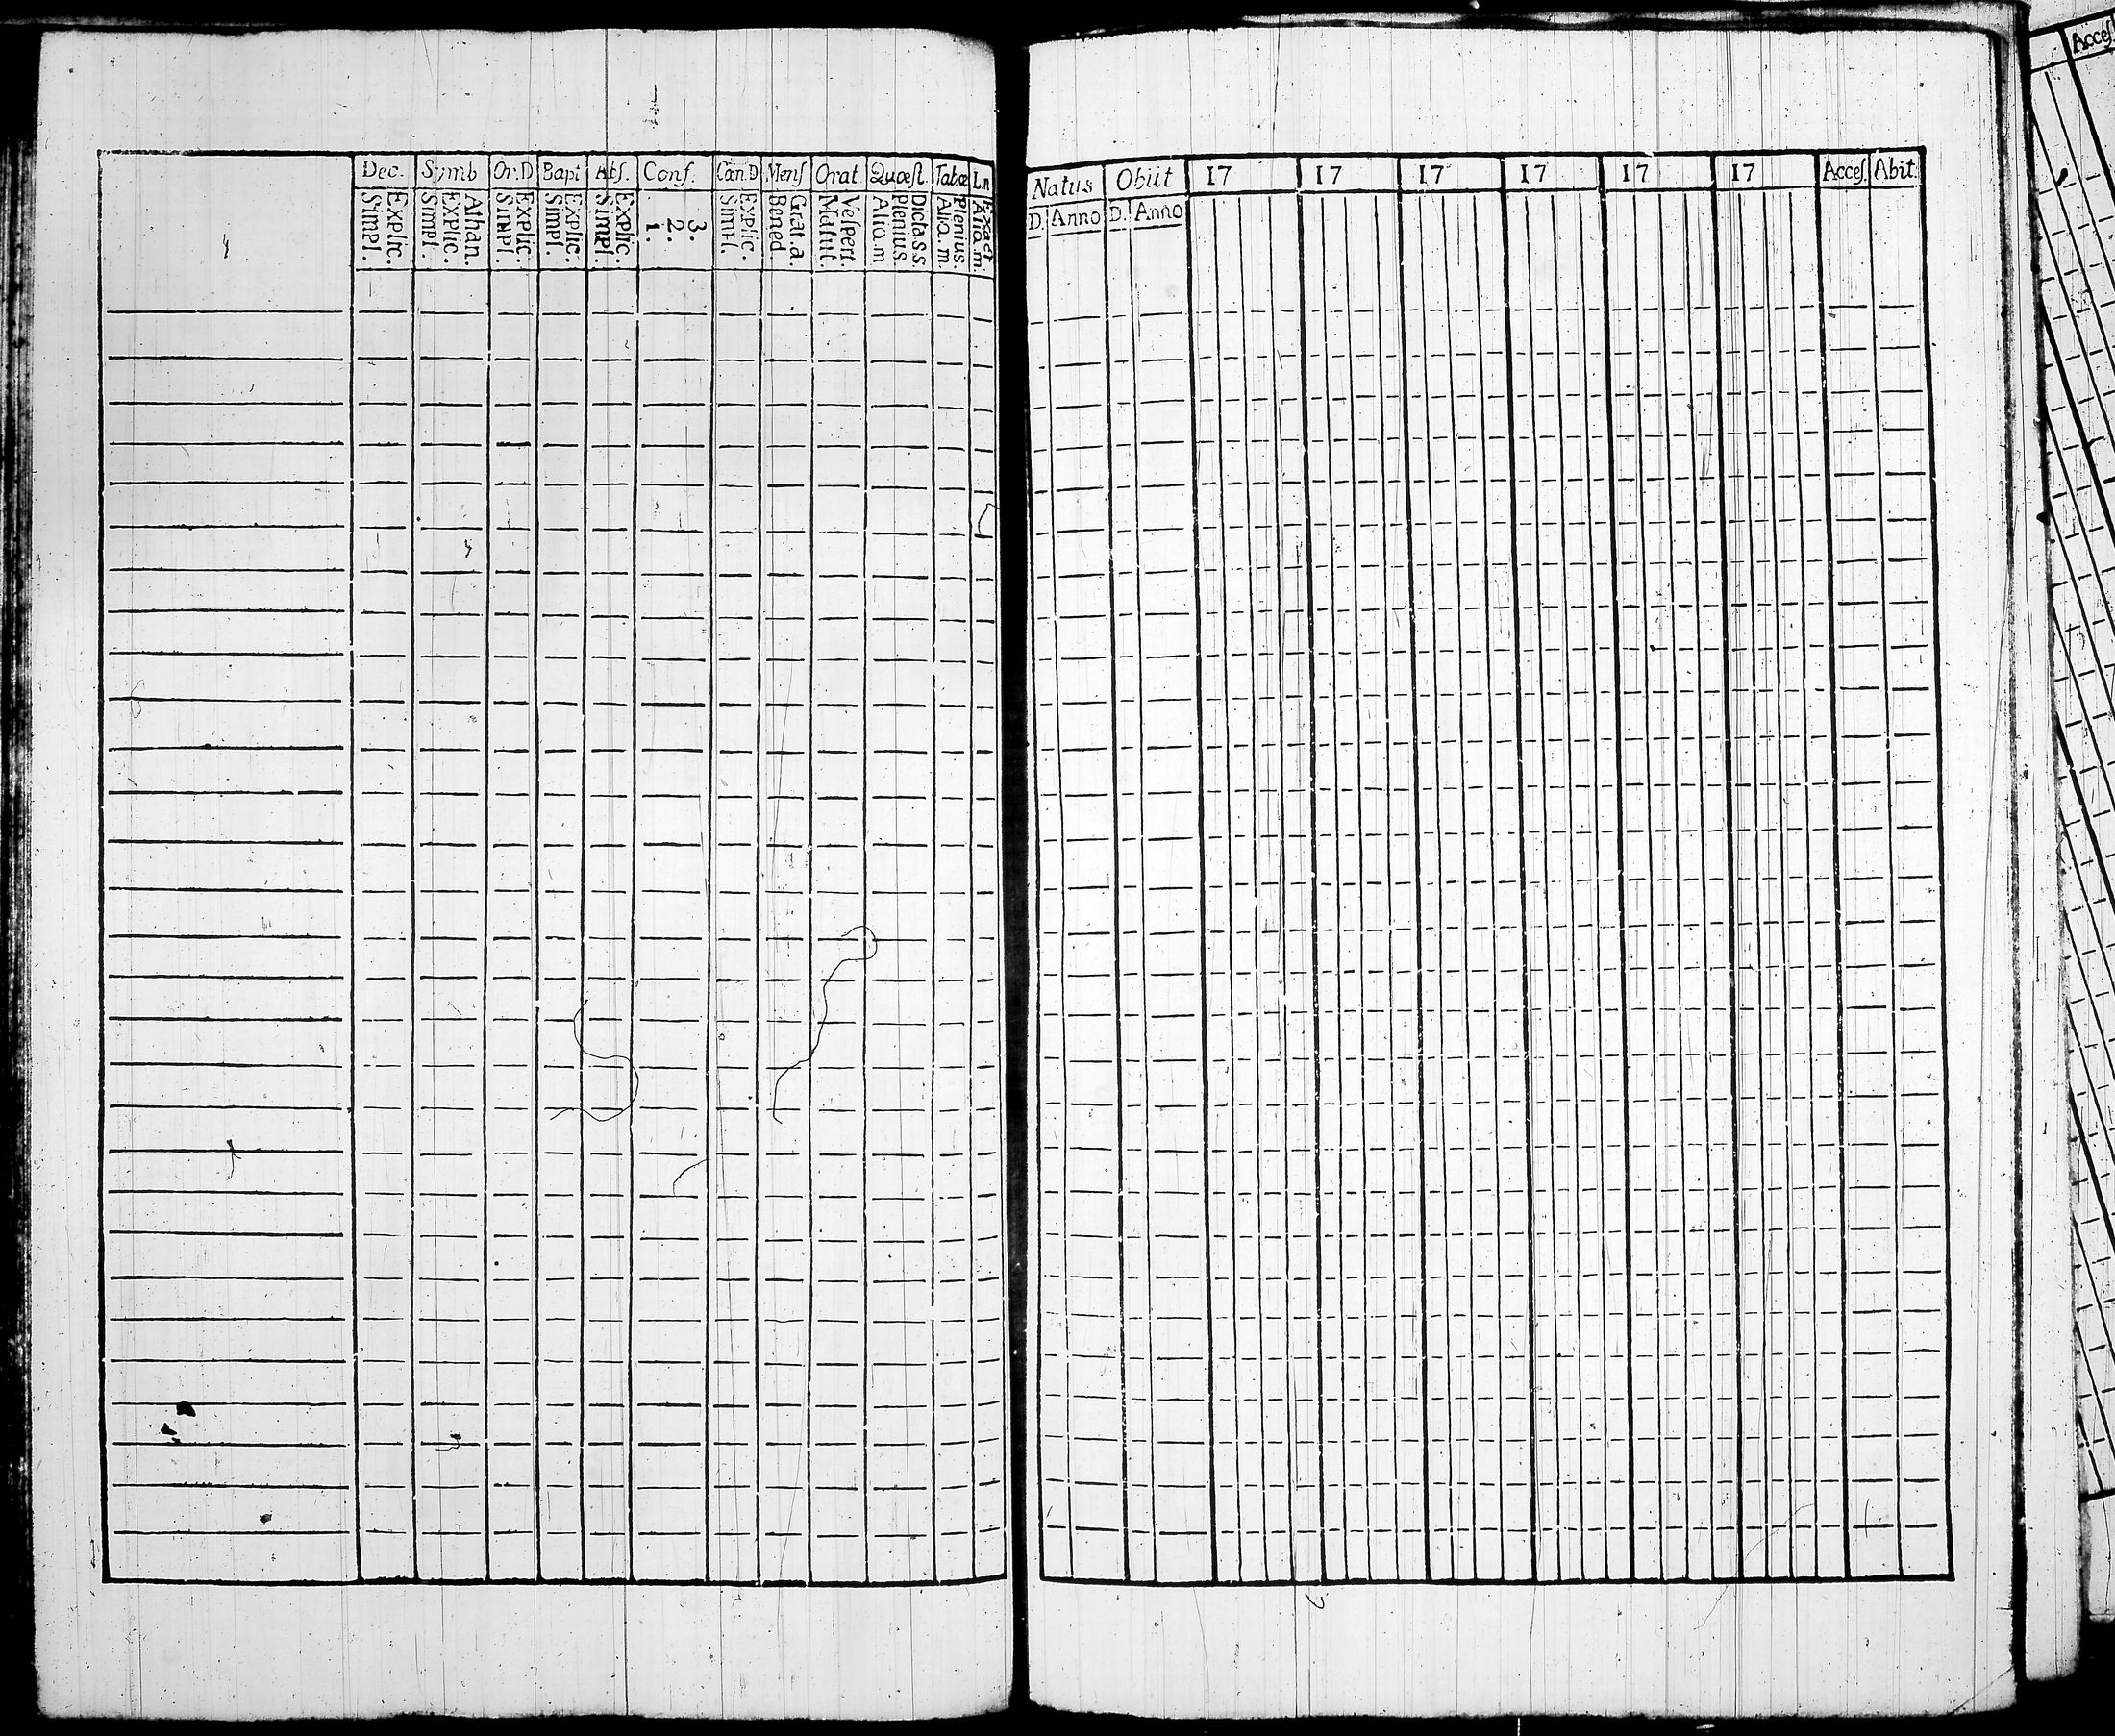 Dec. Symb Or.D Bapt Abſ. Conf. Cœn.D Menſ Orat Quæſt. Tabœ L.n
Explic. Simpl. Athan. Explic. Simpl. Explic. Simpl. Explic. Simpl. Explic. Simpl. 3. 2. 1. Explic. Simpl. Grat.a Bened Veſpert. Matut. Dicta.s.s. Plenius. Alio.m Plenius. Alia.m. Exact Alia.m.
Natus Obiit 17 17 17 17 17 17 Acceſ. Abit.
D. Anno D. Anno
Acceſ.